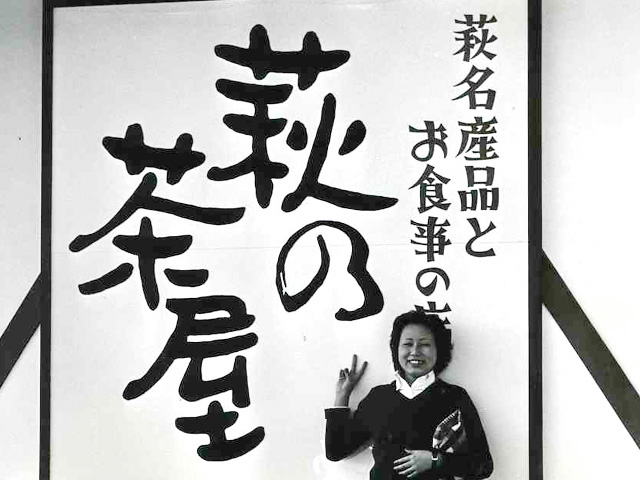 萩名産品と
お食事の
萩の
茶屋